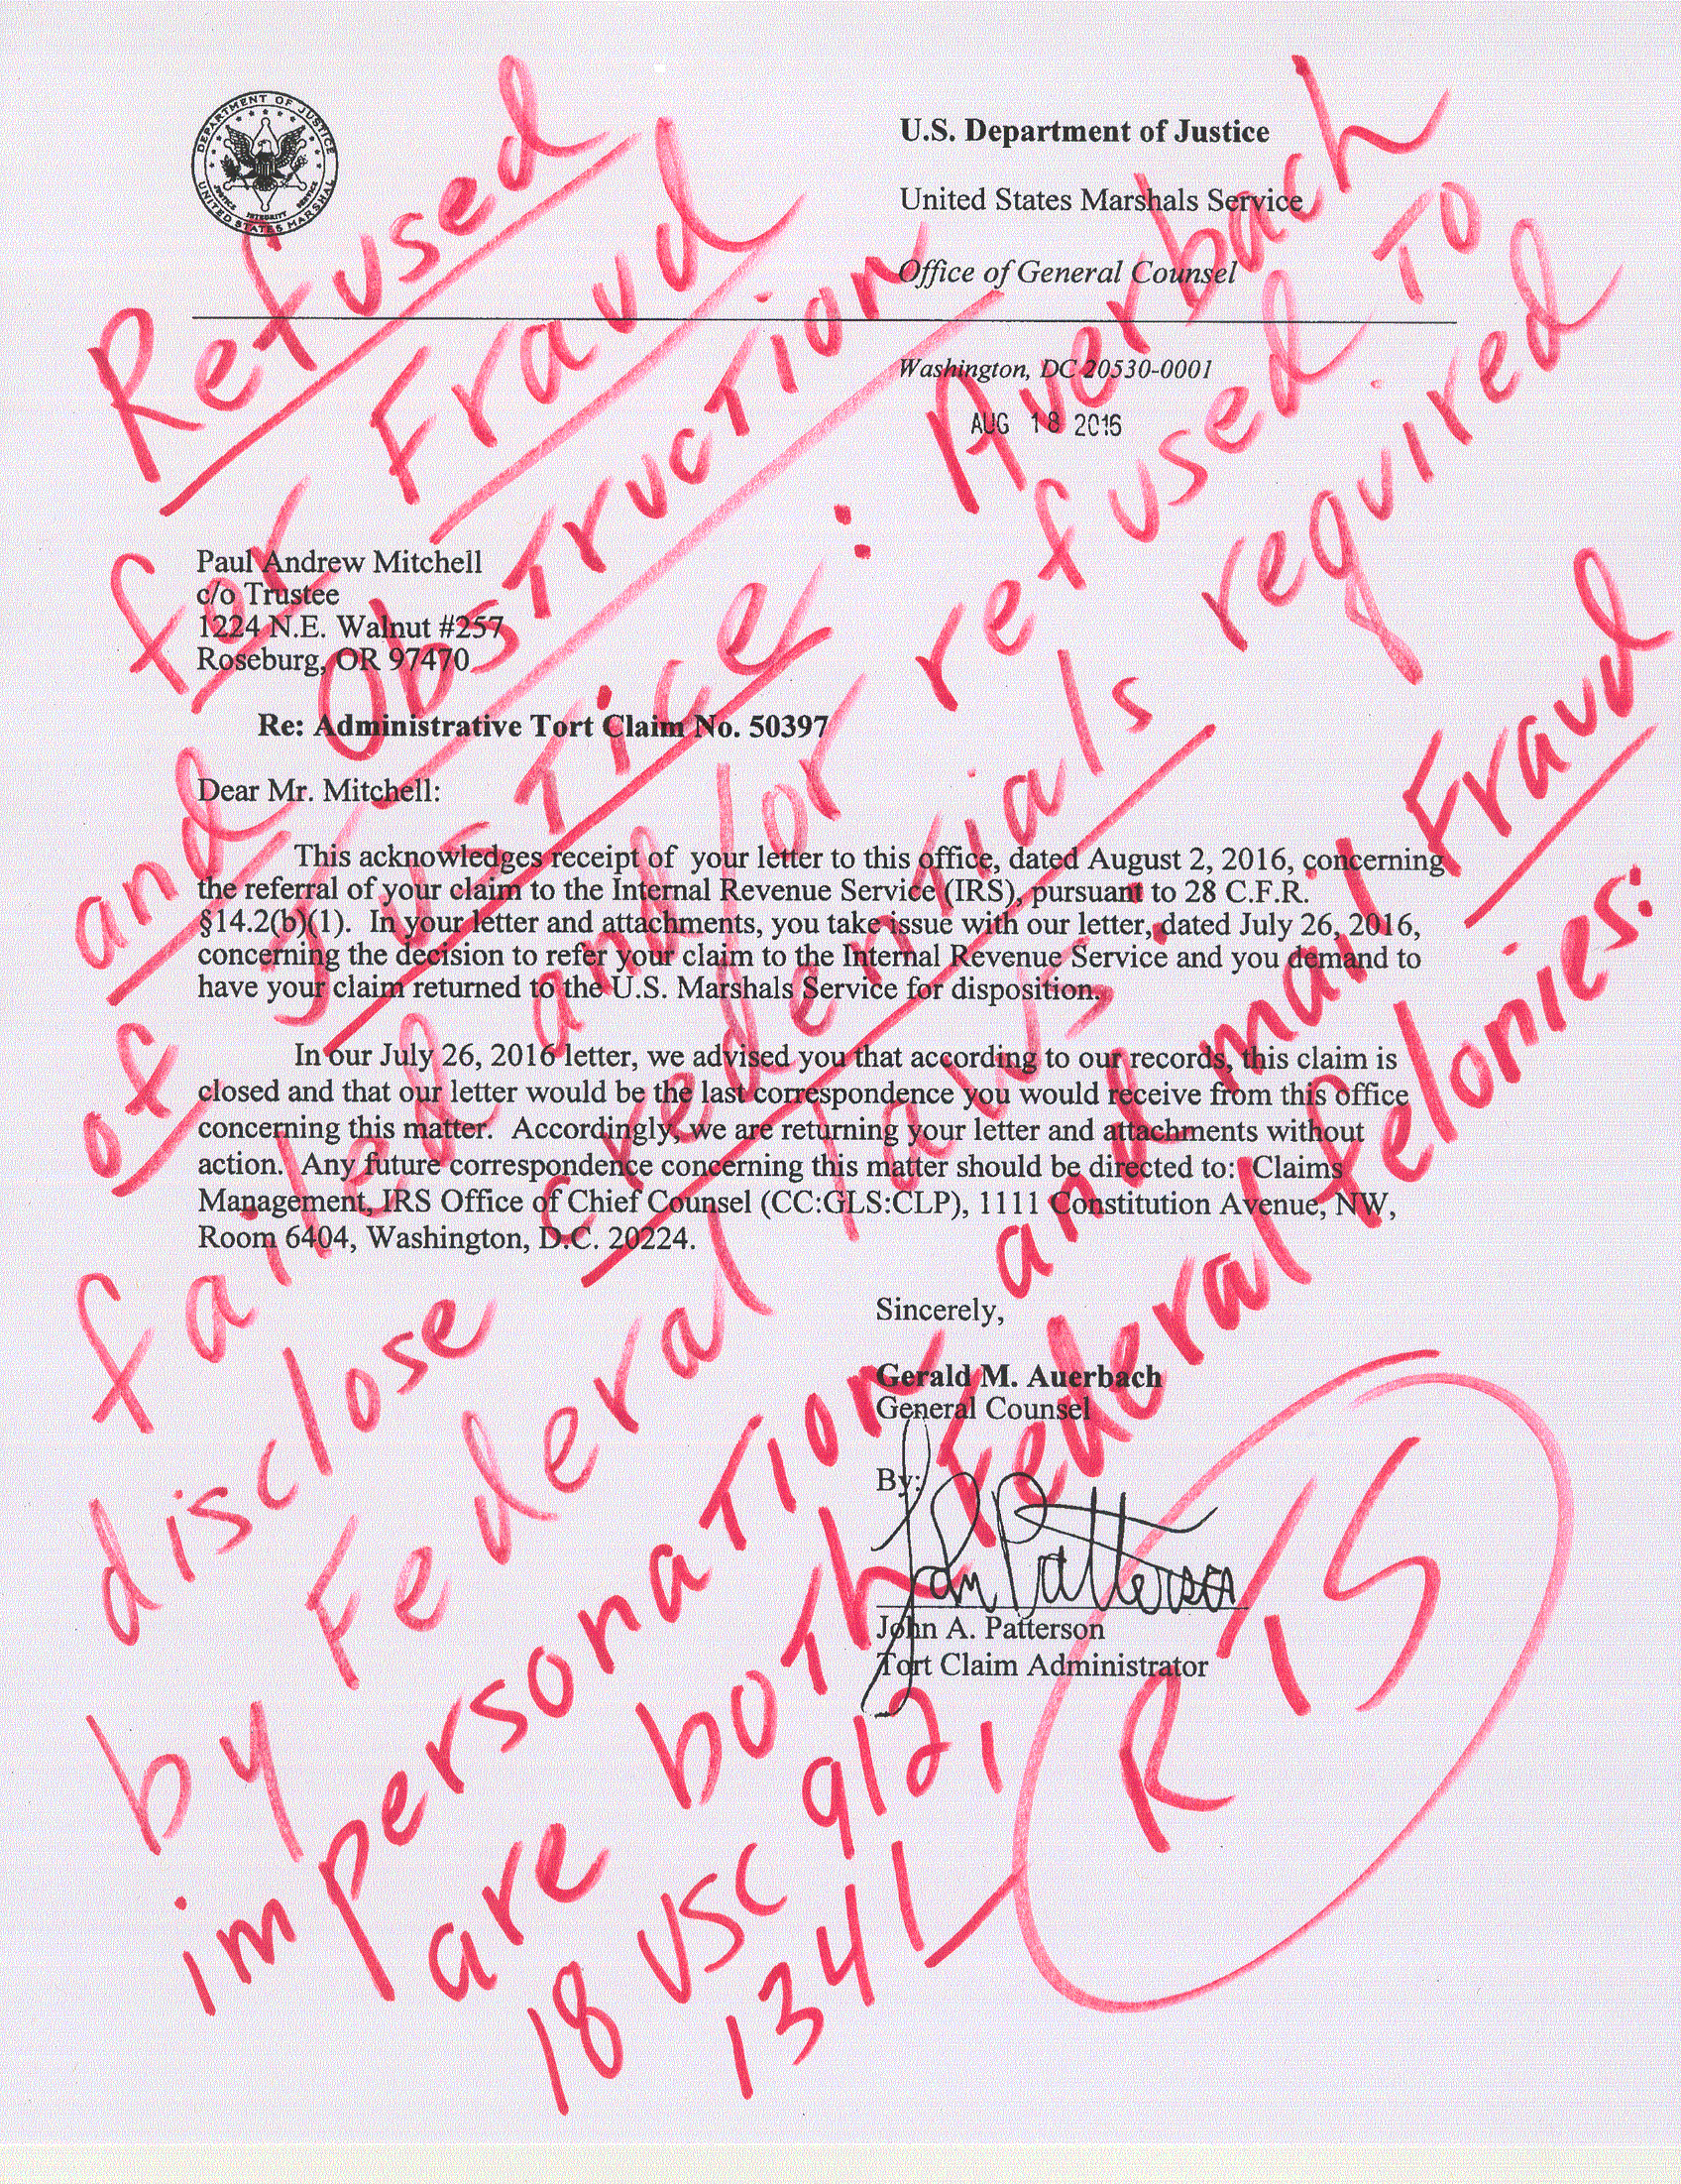 DEPARTMENT OF JUSTICE
UNITED STATES MARSHAL
JUSTICE INTEGRITY SERVICE
U.S. Department of Justice
United States Marshals Service
Office of General Counsel
Washington, DC 20530-0001
AUG 18 2016
Paul Andrew Mitchell
c/o Trustee
1224 N.E. Walnut #257
Roseburg, OR 97470
Re: Administrative Tort Claim No. 50397
Dear Mr. Mitchell:
This acknowledges receipt of your letter to this office, dated August 2, 2016, concerning
the referral of your claim to the Internal Revenue Service (IRS), pursuant to 28 C.F.R.
§14.2(b)(1). In your letter and attachments, you take issue with our letter, dated July 26, 2016,
concerning the decision to refer your claim to the Internal Revenue Service and you demand to
have your claim returned to the U.S. Marshals Service for disposition.
In our July 26, 2016 letter, we advised you that according to our records, this claim is
closed and that our letter would be the last correspondence you would receive from this office
concerning this matter. Accordingly, we are returning your letter and attachments without
action. Any future correspondence concerning this matter should be directed to: Claims
Management, IRS Office of Chief Counsel (CC:GLS:CLP), 1111 Constitution Avenue, NW,
Room 6404, Washington, D.C. 20224.
Sincerely,
Gerald M. Auerbach
General Counsel
By:
John Patterson
John A. Patterson
Tort Claim Administrator
Refused
for Fraud
and Obstruction
of Justice: Auerbach
failed and/or refused to
disclose credentials required
by Federal laws:
impersonation and mail Fraud
are both Federal felonies:
18 USC 912,
1341
RTS